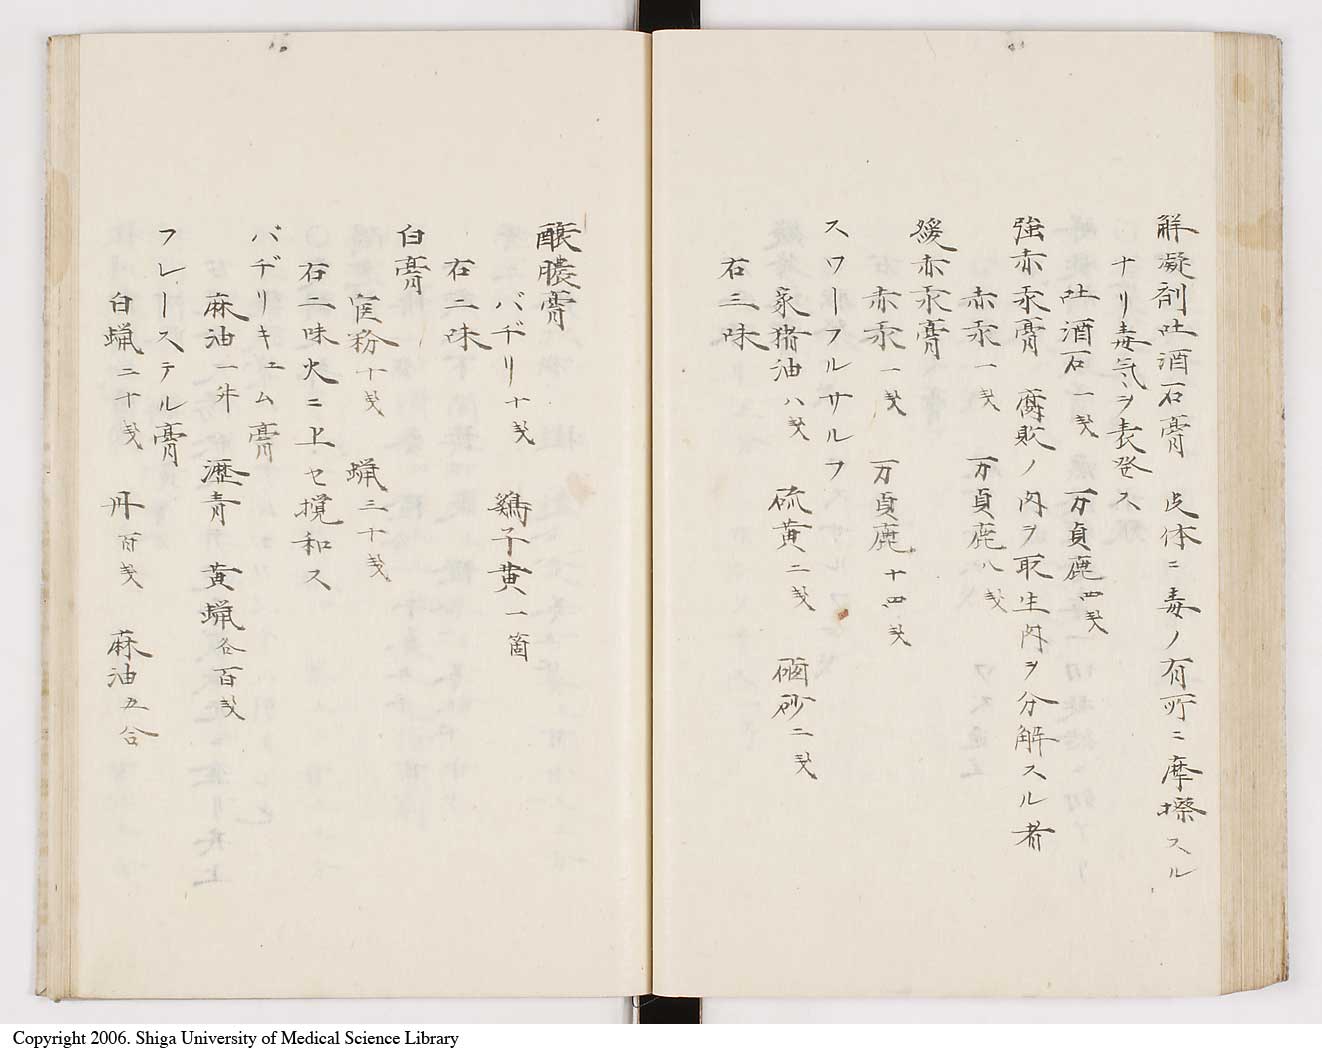 解凝剤吐酒石膏　皮体ニ毒ノ有所ニ摩擦スル
ナリ毒気ヲ表発ス
吐酒石一戔　万貞鹿四戔
強赤汞膏　腐敗ノ肉ヲ取生肉ヲ分解スル者
赤汞一戔　万貞鹿八戔
緩赤汞膏
赤汞一戔　万貞鹿十四戔
スワーフルサルフ
家猪油八戔　硫黄二戔　硇砂二戔
右三味
醸膿膏
バヂリ十戔　鶏子黄一箇
右二味
白膏
官粉十戔　蝋三十戔
右二味火ニ上セ攪和ス
バヂリキュム膏
麻油一升　瀝青　黄蝋各百戔
フレーステル膏
白蝋二十戔　丹百戔　麻油五合
Copyright 2006. Shiga University of Medical Science Library